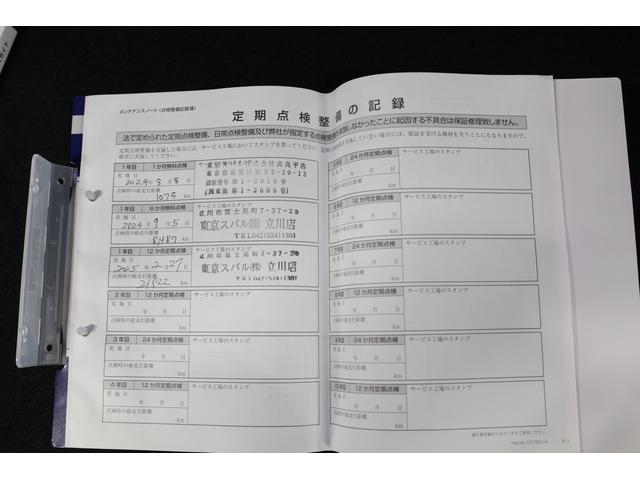 メンテナンスノート（点検整備記録簿）
定期点検整備の記録
法で定められた定期点検整備、日常点検整備及び弊社が指定する点検整備を実施しなかったことに起因する不具合は保証修理致しません。
定期点検整備を実施した場合には、サービス工場においてスタンプを貰ってください。
確実に実施してください。
1年目 1か月無料点検
サービス工場のスタンプ
実施日
2024年3月8日
点検時の総走行距離
1075 km
1年目 6か月無料点検
サービス工場のスタンプ
立川市富士見町7-37-25
東京スバル㈱ 立川店
TEL042(524)1301
実施日
2024年9月5日
点検時の総走行距離
8487 km
1年目 12か月定期点検
サービス工場のスタンプ
立川市富士見町7-37-25
東京スバル㈱ 立川店
TEL042(524)1301
実施日
2025年2月27日
点検時の総走行距離
km
2年目 12か月定期点検
サービス工場のスタンプ
実施日
年 月 日
点検時の総走行距離
km
3年目 24か月定期点検
サービス工場のスタンプ
実施日
年 月 日
点検時の総走行距離
km
4年目 12か月定期点検
サービス工場のスタンプ
実施日
年 月 日
点検時の総走行距離
km
していない場合には、保証を受ける権利を失うことにもなりますので、
24か月定期点検
サービス工場のスタンプ
年 月 日
km
12か月定期点検
サービス工場のスタンプ
年 月 日
km
24か月定期点検
サービス工場のスタンプ
年 月 日
km
12か月定期点検
サービス工場のスタンプ
年 月 日
km
24か月定期点検
サービス工場のスタンプ
年 月 日
km
12か月定期点検
サービス工場のスタンプ
年 月 日
点検時の総走行距離
km